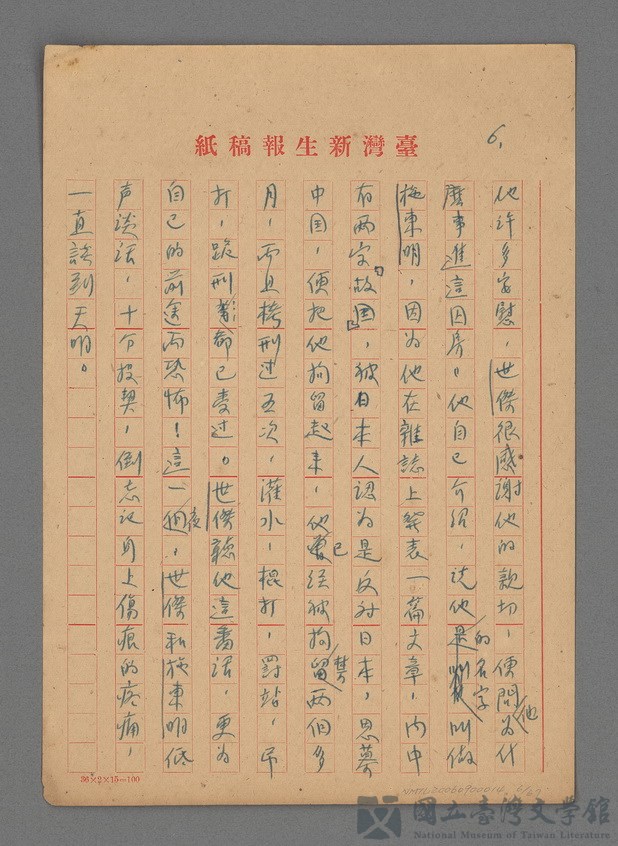 6.
臺灣新生報稿紙
他許多安慰，世傑很感謝他的親切，便問他为什
麽事進這囚房。他自己介紹，说他的名字叫做
施東明，因为他在雜誌上發表一篇文章，内中
有两字「故国」，被日本人認为是反对日本，思慕
中国，便把他拘留起来，他已经被拘禁两個多
月，而且拷刑过五次，灌水，棍打，罰站，吊
打，跪刑都已受过。世傑聽他這番话，更为
自己的前途而恐怖！這一夜，世傑和施東明低
声淡话，十分投契，倒忘记身上傷痕的疼痛，
一直談到天明。
36×2×15=100
NMTL20060900014 6/27
國立臺灣文学館
National Museum of Taiwan Literature